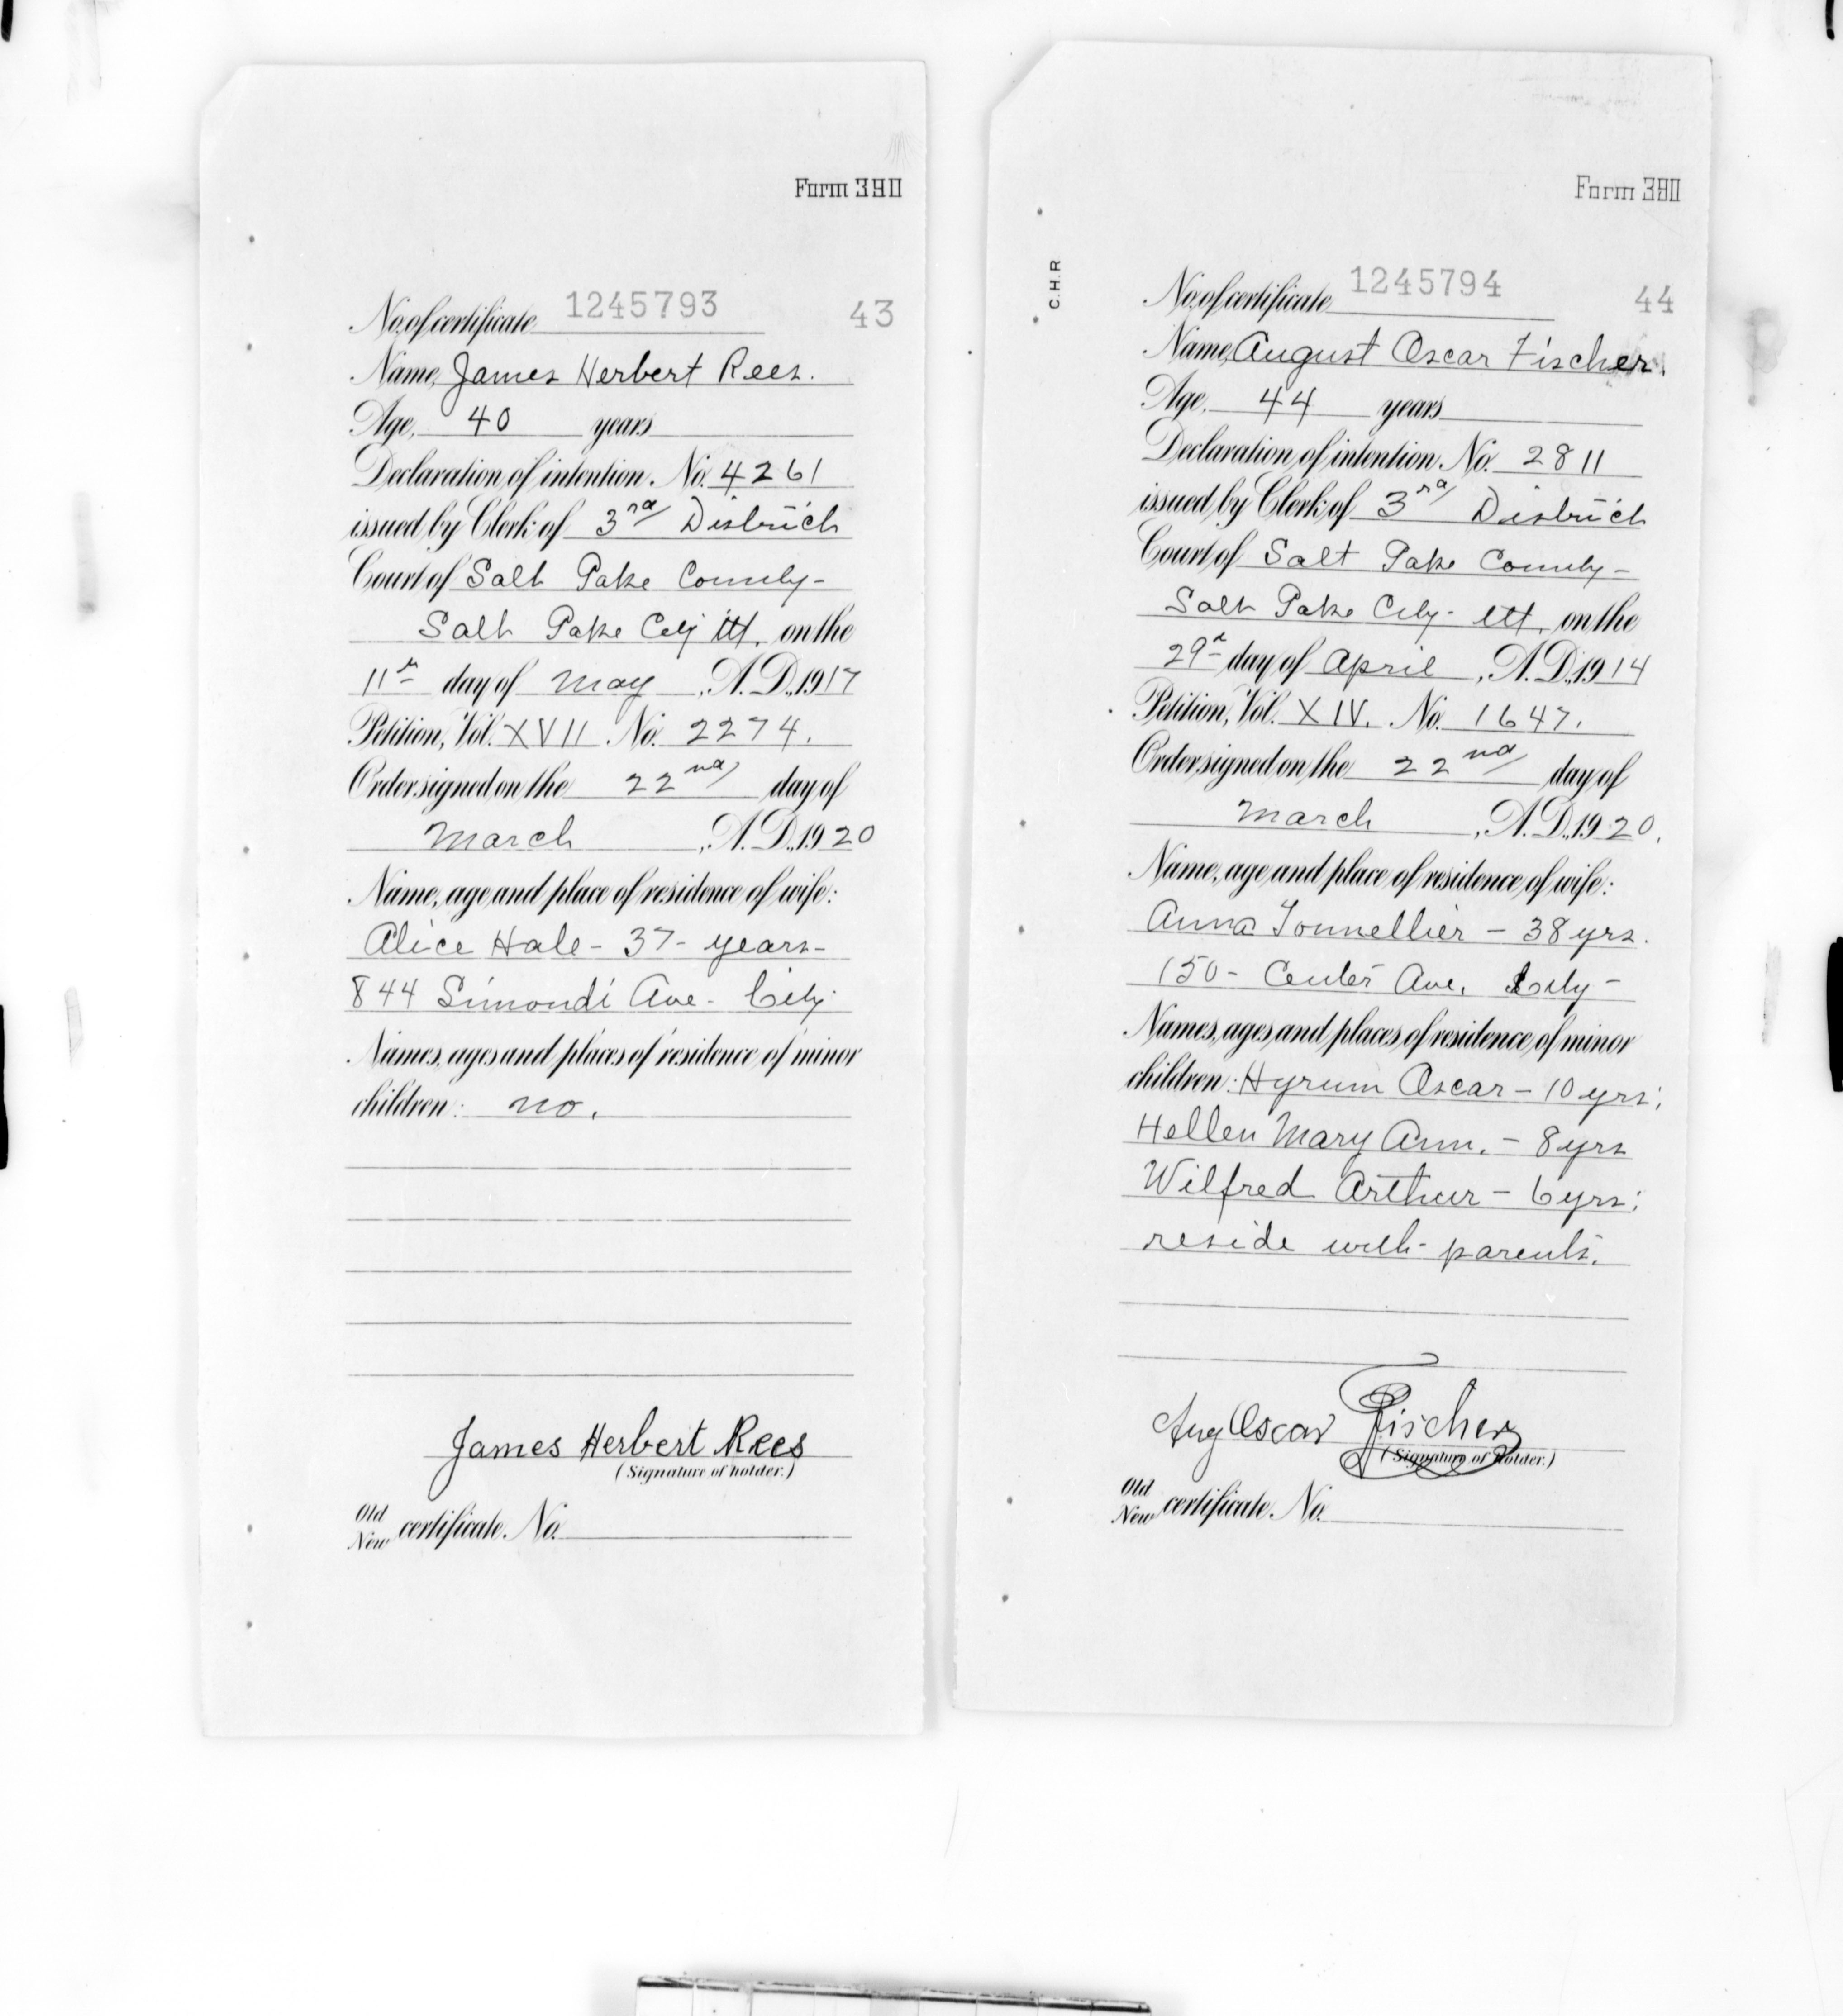 Form 390
No. of certificate 1245793 43
Name, James Herbert Rees.
Age, 40 years
Declaration of intention, No. 4261
issued by Clerk of 3rd District
Court of Salt Lake County-
Salt Lake City Ut. on the
11th day of May, A.D., 1917
Petition, Vol. XVII No. 2274.
Order signed on the 22nd day of
March, A.D., 1920
Name, age and place of residence of wife:
Alice Hale - 37 - years -
844 Simondi Ave - City
Names, ages and places of residence of minor
children: no.
James Herbert Rees
(Signature of holder.)
Old
New certificate No.
Form 390
C.H.R
No. of certificate 1245794 44
Name, August Oscar Fischer.
Age, 44 years
Declaration of intention, No. 2811
issued by Clerk of 3rd District
Court of Salt Lake County -
Salt Lake City - Ut. on the
29th day of April, A.D., 1914
Petition, Vol. XIV. No. 1647.
Order signed on the 22nd day of
March, A.D., 1920.
Name, age and place of residence of wife:
Anna Tonnellier - 38 yrs.
150 - Center Ave. City -
Names, ages and places of residence of minor
children: Hyrum Oscar - 10 yrs;
Hellen Mary Ann. - 8 yrs
Wilfred Arthur - 6 yrs;
reside with parents.
Aug Oscar Fischer
(Signature of holder.)
Old
New certificate No.